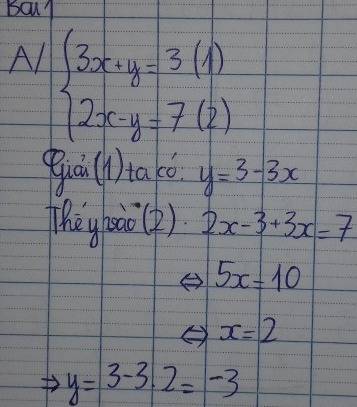 Bài 1
A/ { 3x+y = 3 (1)
2x-y = 7 (2)
Giải (1) ta có: y = 3-3x
Thế y vào (2). 2x-3+3x=7
⇔ 5x=10
⇔ x=2
⇒ y= 3-3.2= -3